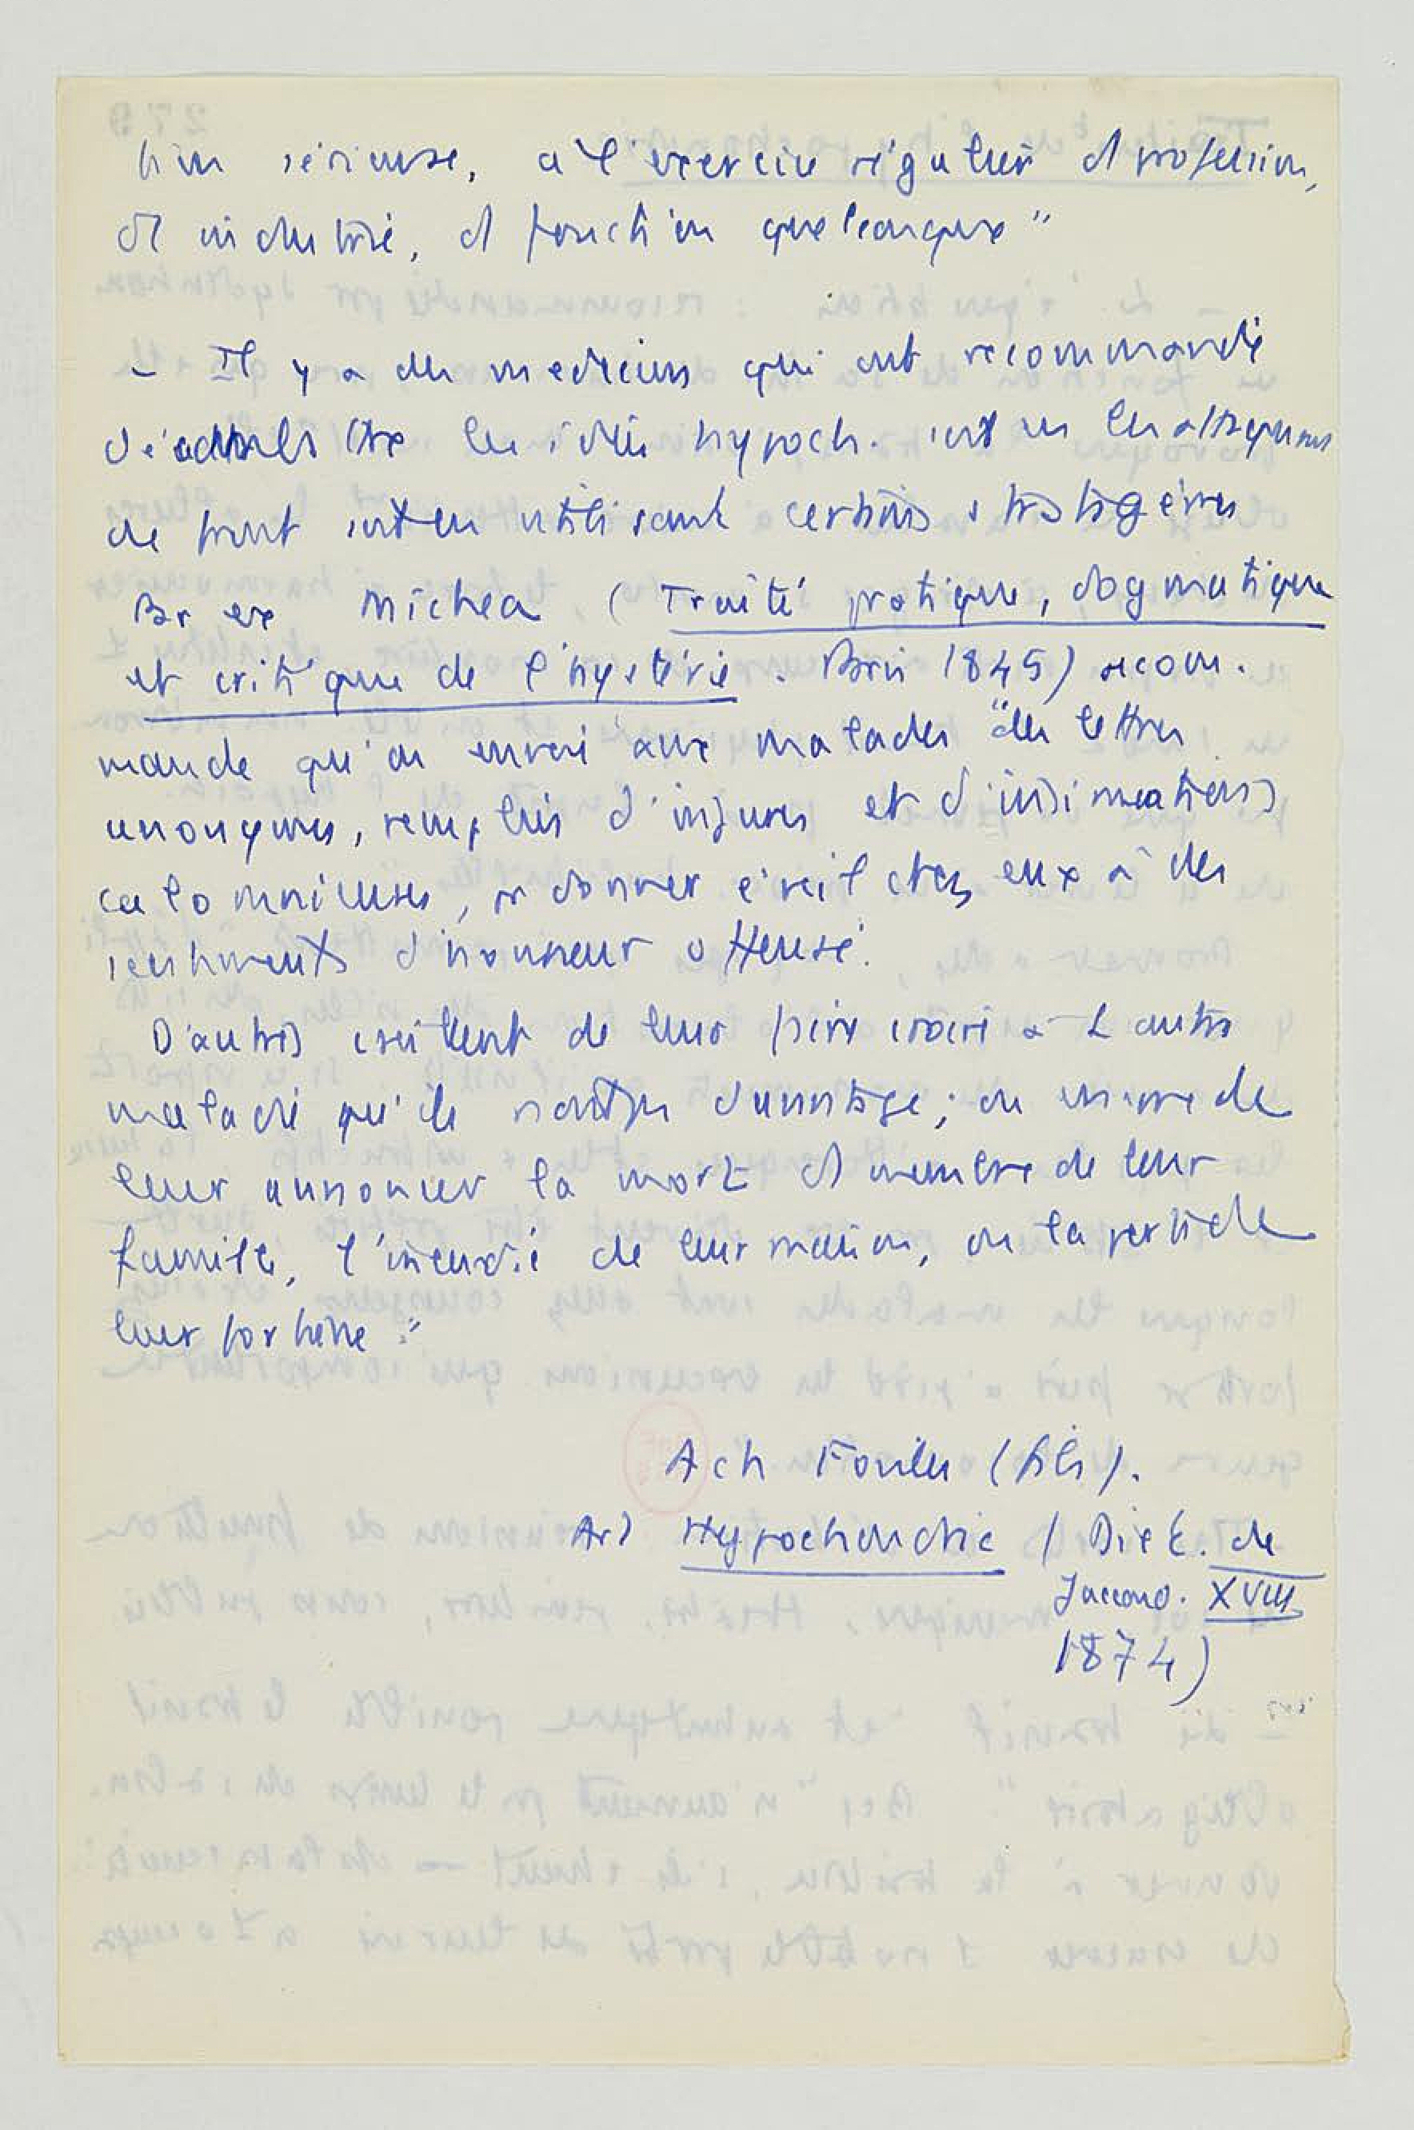 tion sérieuse, à l'exercice régulier d profession,
d industrie, d fonction quelconque"
– Il y a des medecins qui ont recommandé
de les idées hypoch. soit en les attaquant
de front soit en utilisant certains stratagèmes
Par ex Michea (Traité pratique, dogmatique
et critique de l'hystérie. Paris 1845) recom.
mande qu'on envoi aux malades "des lettres
anonymes, remplies d'injures et d'insinuations
calomnieuses, pr donner éveil chez eux à des
sentiments d'honneur offensé.
D'autres de leur faire croire à 1 autre
maladie qu'ils davantage; ou encore de
leur annoncer la mort d membre de leur
famille, l'incendie de leur maison, ou la perte de
leur fortune :"
Ach Foville (fils).
Art Hypochondrie (Dict. de
Jaccoud. XVIII
1874)